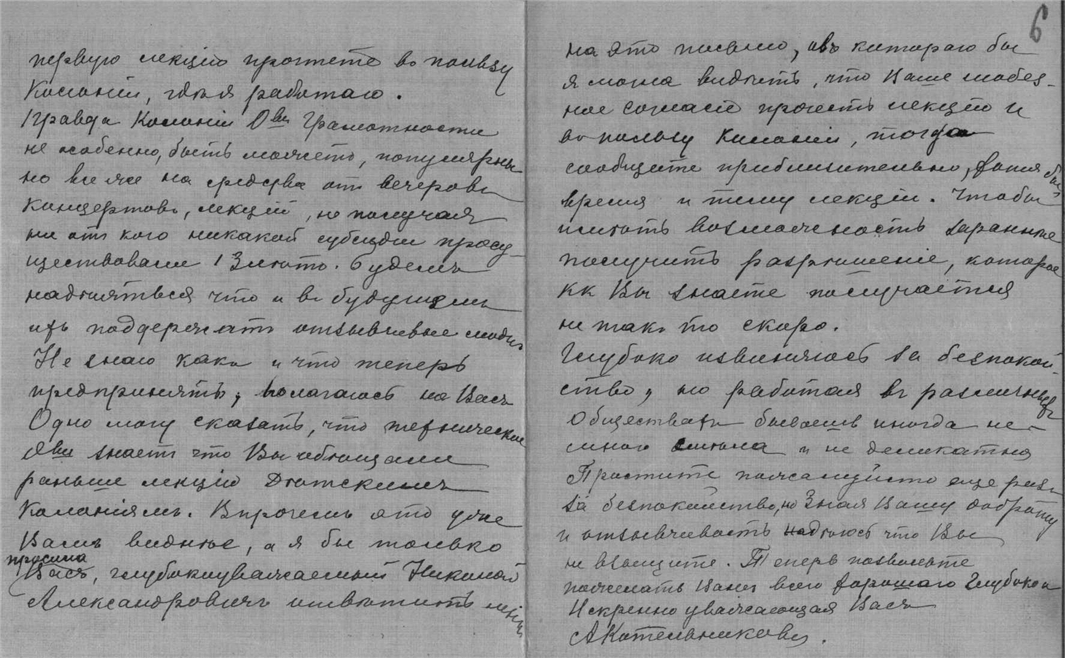 первую лекцію прочтете въ пользу
Колоніи, гдѣ я работаю.
Правда Колоніи О-ва Грамотности
не особенно, быть можетъ, популярны
но все же на средства отъ вечеровъ
концертовъ, лекцій, не получая
ни отъ кого никакой субсидіи просу-
ществовали 13 лѣтъ. Будемъ
надѣяться что и въ будущемъ
ихъ поддержатъ отзывчивые люди.
Не знаю какъ и что теперь
предпринять, полагаюсь на Васъ
Одно могу сказать, что техническое
О-во знаетъ что Вы обѣщали
раньше лекцію Дѣтскимъ
Колоніямъ. Впрочемъ это уже
Вамъ виднѣе, а я бы только
просила
Васъ, глубокоуважаемый Николай
Александровичъ отвѣтить мнѣ
6
на это письмо, изъ котораго бы
я могла видѣть, что Ваше любез-
ное согласіе прочесть лекцію и
въ пользу Колоніи, тогда
сообщите приблизительно, хотя бы
время и тему лекціи. Чтобы
имѣть возможность заранѣе
получить разрѣшеніе, которое
кк Вы знаете получается
не такъ то скоро.
Глубоко извиняюсь за безпокой-
ство, но работая въ различныхъ
Обществахъ бываешь иногда не-
много смѣла и не деликатна
Простите пожалуйста еще разъ
за безпокойство, но зная Вашу доброту
и отзывчивость надѣюсь что Вы
не взыщите. Теперь позвольте
пожелать Вамъ всего хорошаго Глубоко и
Искренно уважающая Васъ
А Котельникова.